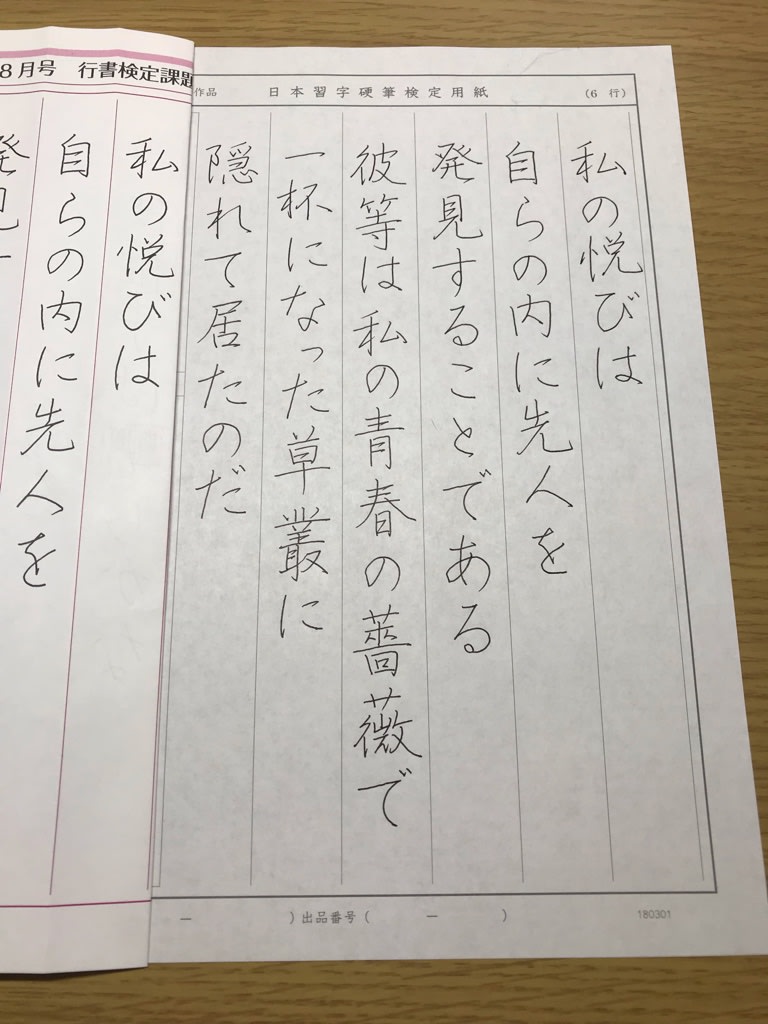 8月号 行書検定課題
私の悦びは
自らの内に先人を
作品 日本習字硬筆検定用紙 (6 行)
私の悦びは
自らの内に先人を
発見することである
彼等は私の青春の薔薇で
一杯になった草叢に
隠れて居たのだ
― )出品番号( ― )
180301